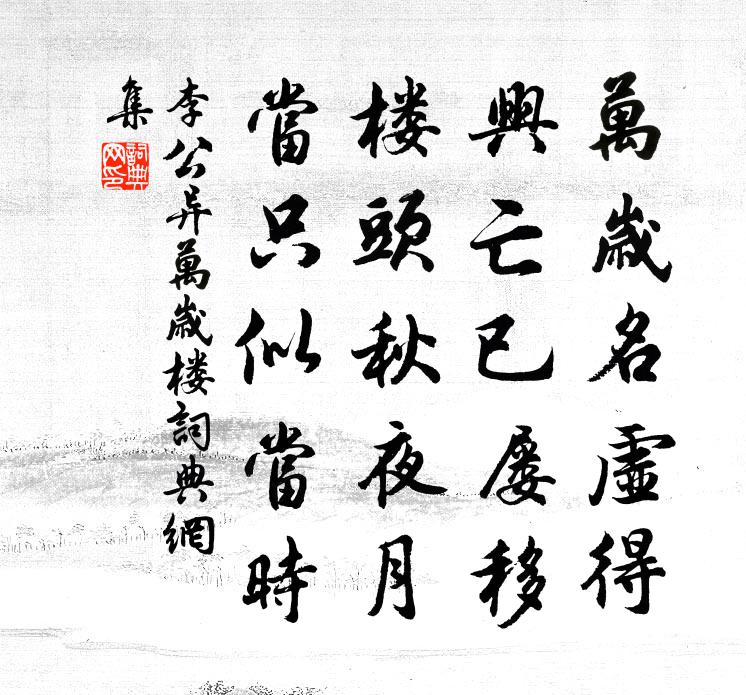 萬歲名虛得
興亡已屡移
楼頭秋夜月
當只似當時
李公异萬歲楼詞典網
集
詞典网印